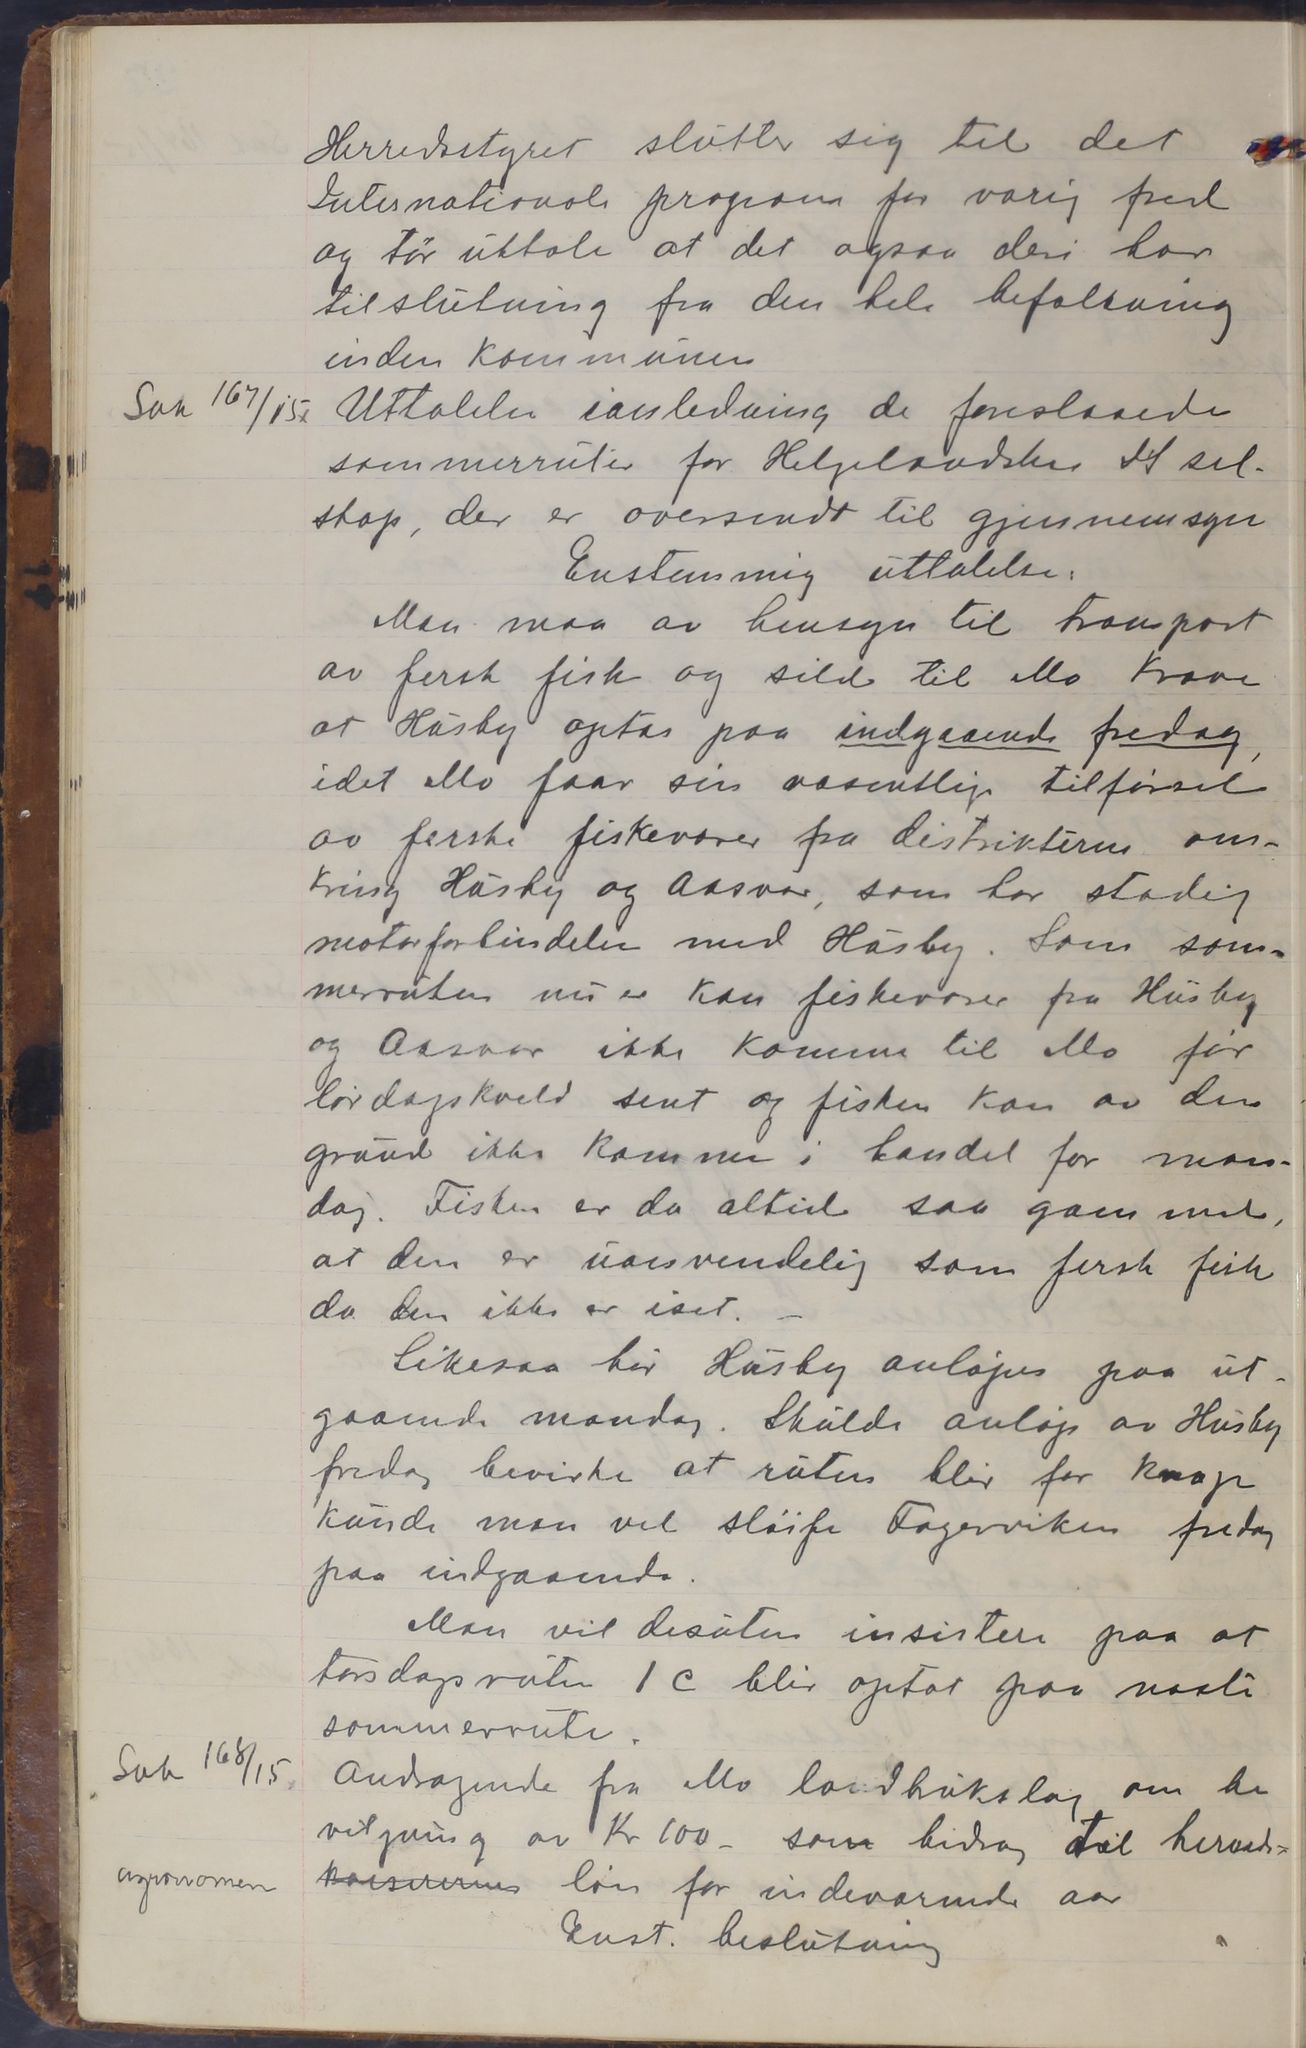 Herredsstyret slutter sig til det
Internationale program for varig fred
og tør uttale at det ogsaa deri har
tilslutning fra den hele befolkning
inden kommunen
Sak 167/15. Uttalelse ianledning de foreslaaede
sommerruter for Helgelandske DS sel-
skap, der er oversendt til gjennemsyn
Enstemmig uttalelse:
Man maa av hensyn til transport
av fersk fisk og sild til Mo kræve
at Husby optas paa indgaaende fredag,
idet Mo faar sin væsentlige tilførsel
av ferske fiskevarer fra distrikterne om-
kring Husby og Aasvær, som har stadig
motorforbindelse med Husby. Som som-
merruten nu er kan fiskevarer fra Husby
og Aasvær ikke komme til Mo før
lørdagskveld sent og fisken kan av den
grund ikke komme i handel før man-
dag. Fisken er da altid saa gammel,
at den er uanvendelig som fersk fisk
da den ikke er iset. –
Likesaa bør Husby anløpes paa ut-
gaaende mandag. Skulde anløp av Husby
fredag bevirke at ruten blir for knap
kunde man vel sløife Fagerviken fredag
paa indgaaende.
Man vil desuten insistere paa at
torsdagsruten 1 c blir optat paa næste
sommerrute.
Sak 168/15. Andragende fra Mo landbrukslag om be
vilgning av Kr 100- som bidrag til herreds-
agronomen løn for indeværende aar
Enst. beslutning